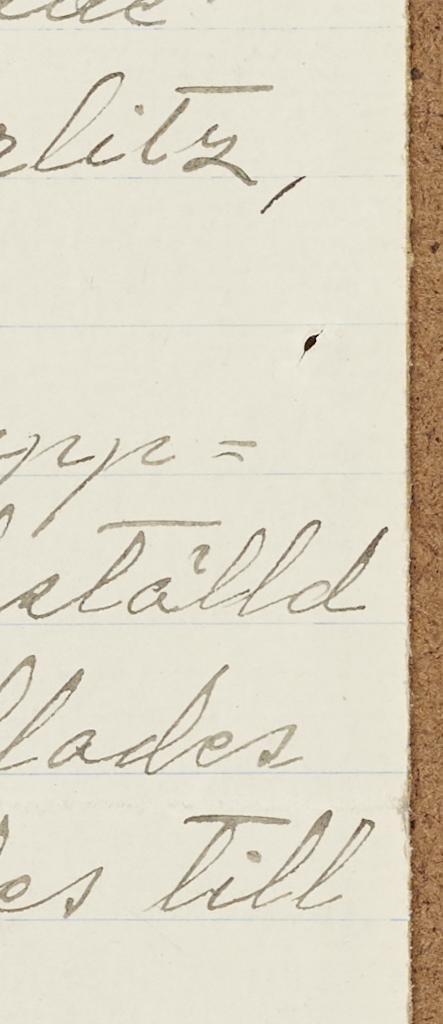 rlitz,
upp=
ställd
llades
des till